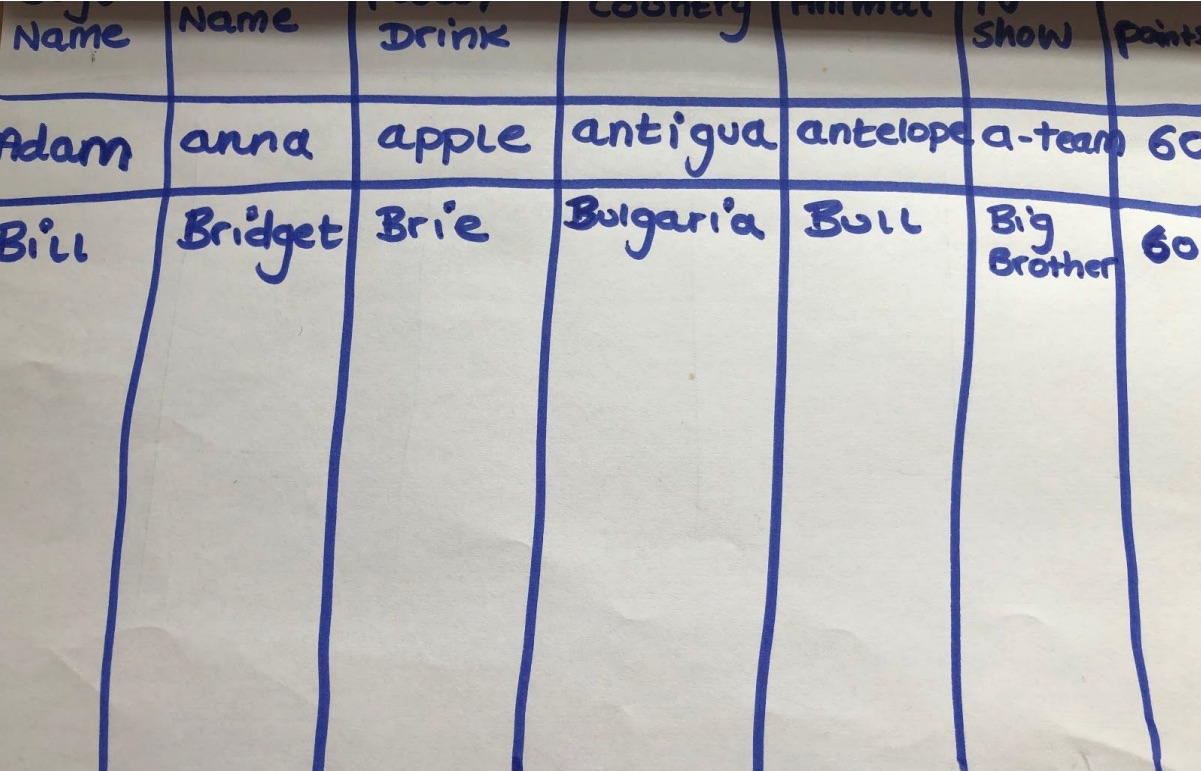 Name Name Drink Country Animal Show points
Adam anna apple antigua antelope a-team 60
Bill Bridget Brie Bulgaria Bull Big Brother 60